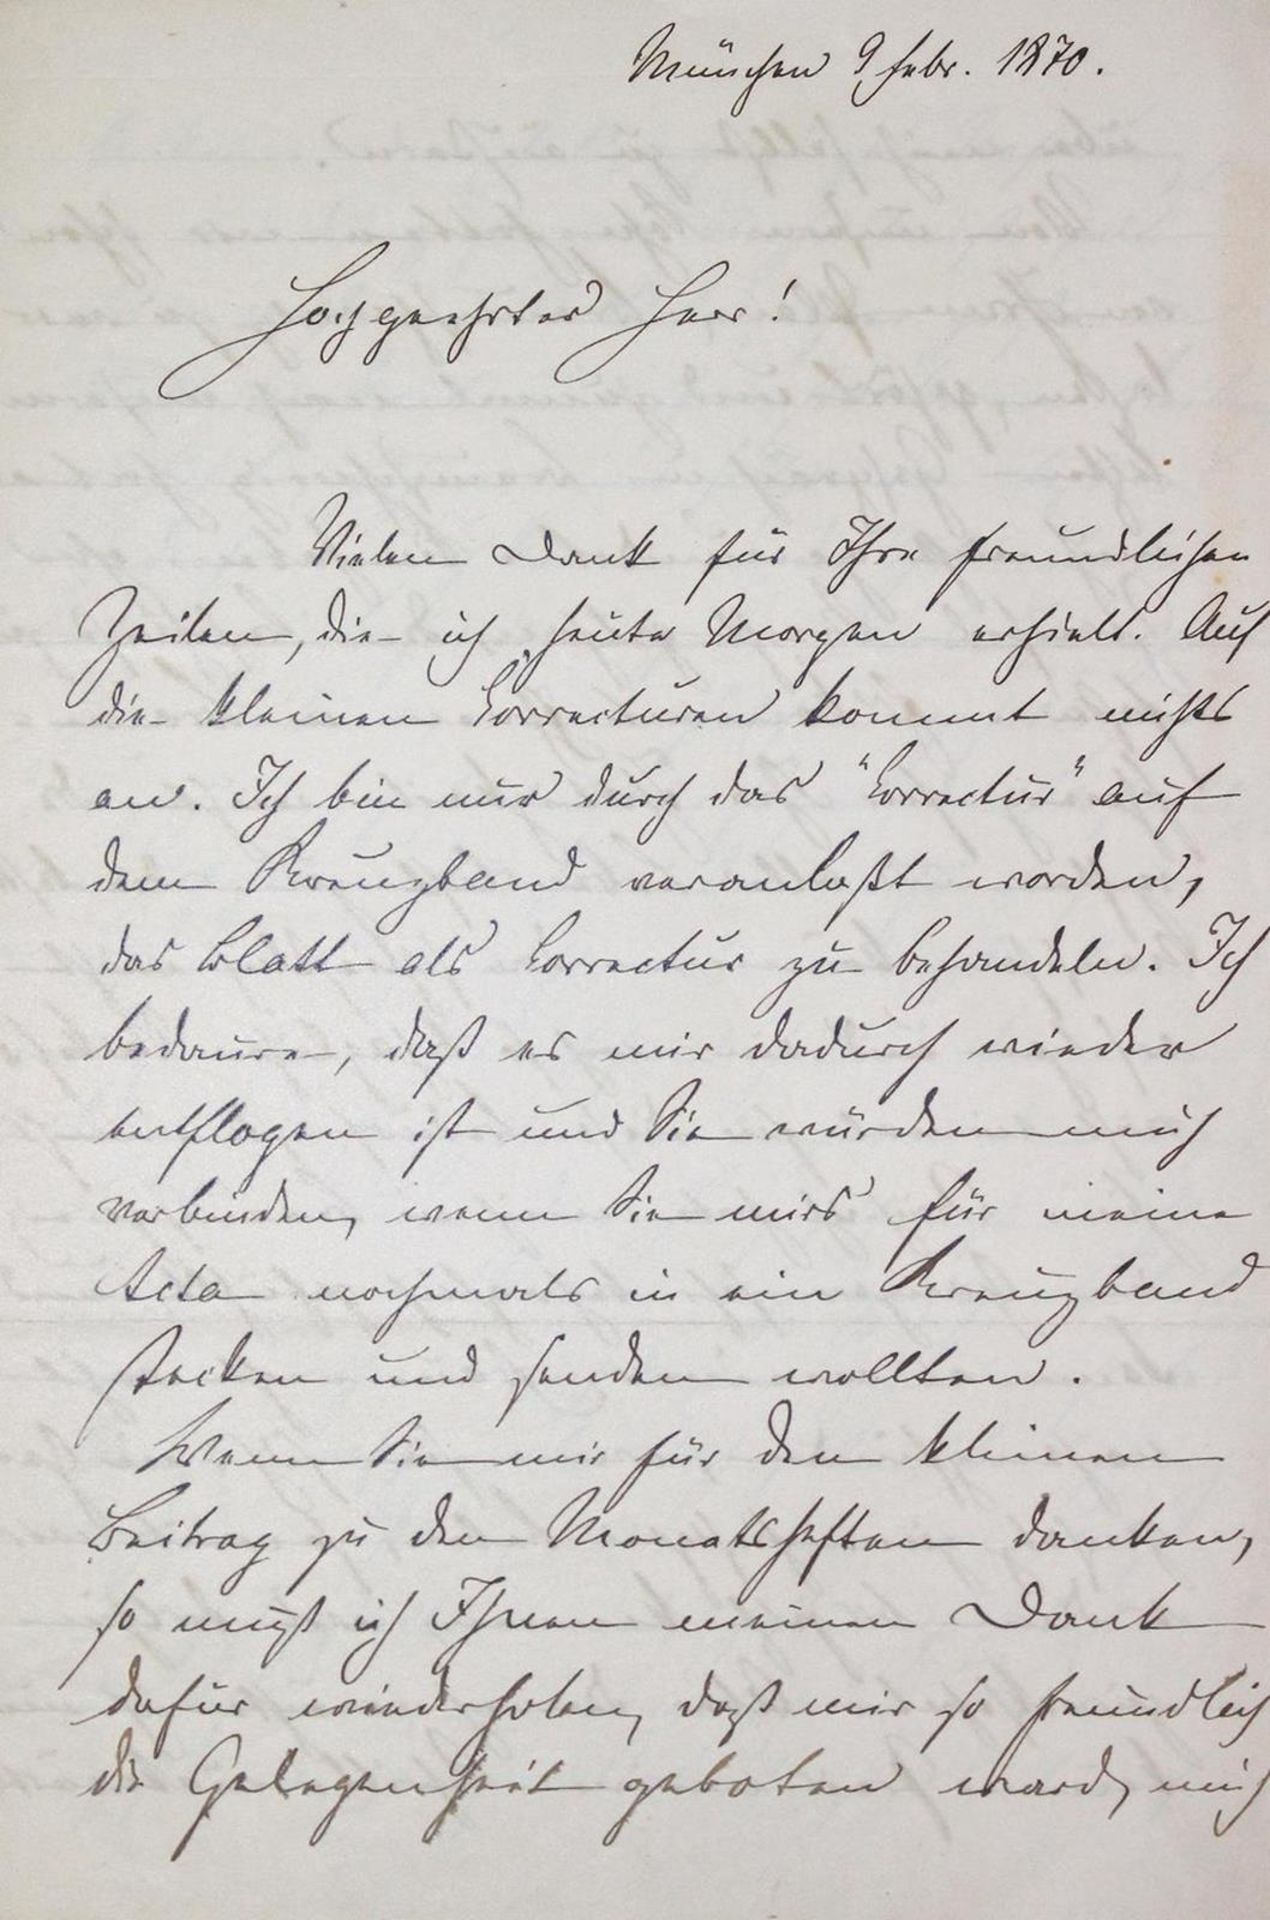 München 9 Febr. 1870.
Hochgeehrter Herr!
Vielen Dank für Ihre freundlichen
Zeilen, die ich heute Morgen erhielt. Auf
die kleinen Correcturen kommt nichts
an. Ich bin nur durch das "Correctur" auf
dem Kreuzband veranlaßt worden,
das Blatt als Correctur zu behandeln. Ich
bedaure, daß es mir dadurch wieder
entflogen ist und Sie würden mich
verbinden, wenn Sie mirs für meine
Acta nochmals in ein Kreuzband
stecken und senden wollten.
Wenn Sie mir für den kleinen
Beitrag zu den Monatsheften danken,
so muß ich Ihnen meinen Dank
dafür wiederholen, daß mir so freundlich
die Gelegenheit geboten ward, mich